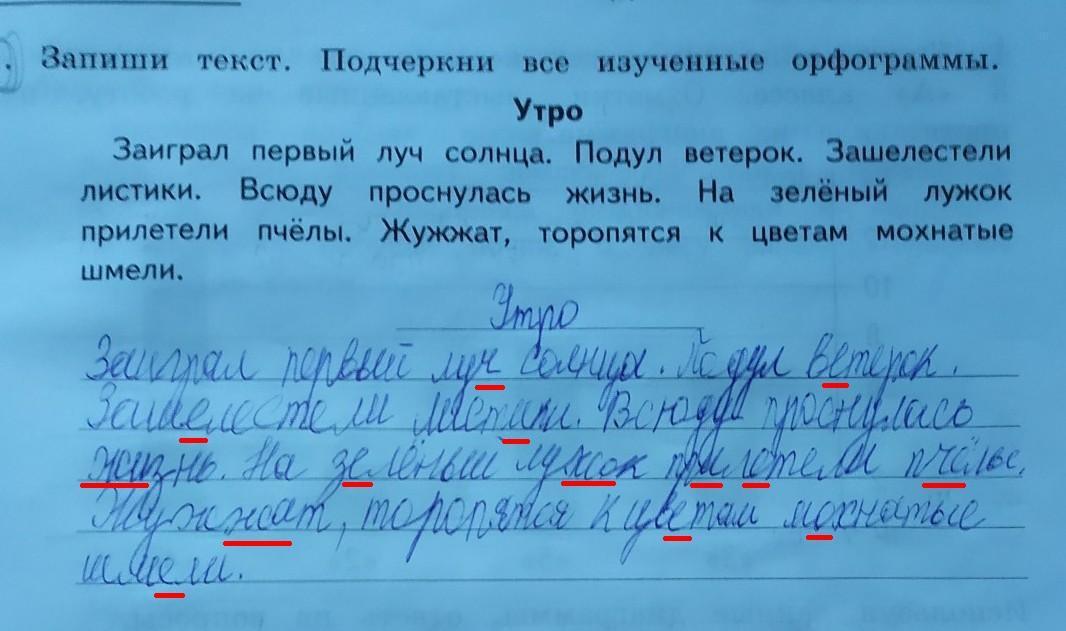 Запиши текст. Подчеркни все изученные орфограммы.
Утро
Заиграл первый луч солнца. Подул ветерок. Зашелестели
листики. Всюду проснулась жизнь. На зелёный лужок
прилетели пчёлы. Жужжат, торопятся к цветам мохнатые
шмели.
Утро
Заиграл первый луч солнца. Подул ветерок.
Зашелестели листики. Всюду проснулась
жизнь. На зелёный лужок прилетели пчёлы.
Жужжат, торопятся к цветам мохнатые
шмели.